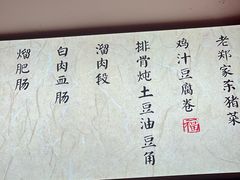 老郑家杀猪菜
鸡汁豆腐卷
排骨炖土豆油豆角
溜肉段
白肉血肠
熘肥肠